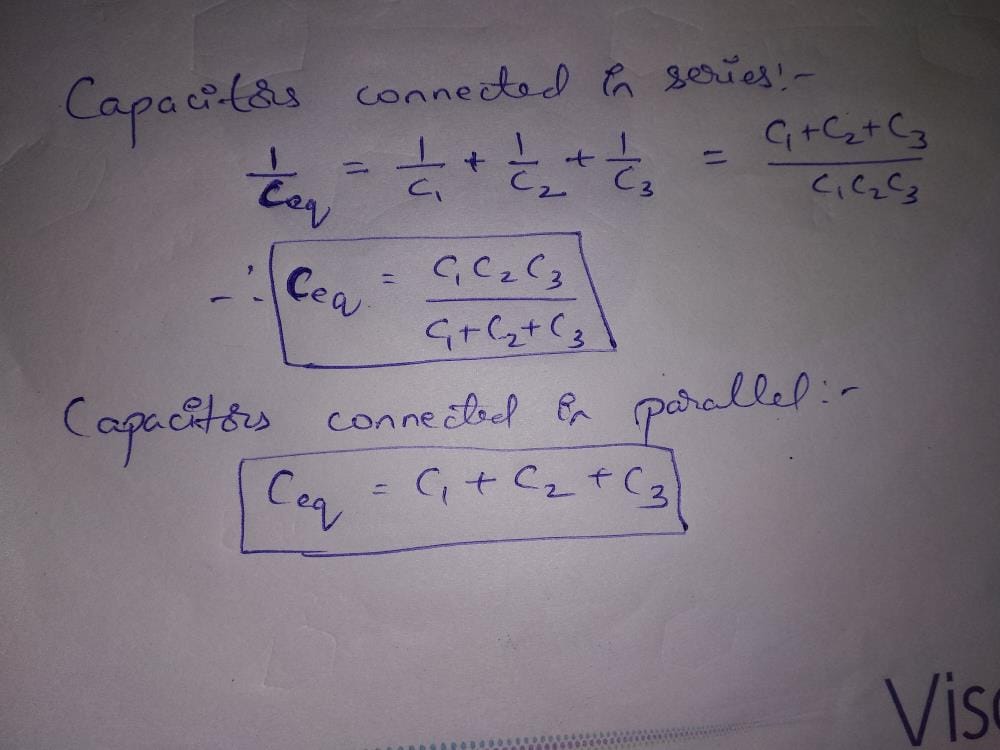 Capacitors connected in series:-
1/Ceq = 1/C1 + 1/C2 + 1/C3 = C1+C2+C3/C1C2C3
∴ Ceq = C1C2C3/C1+C2+C3
Capacitors connected in parallel:-
Ceq = C1 + C2 + C3